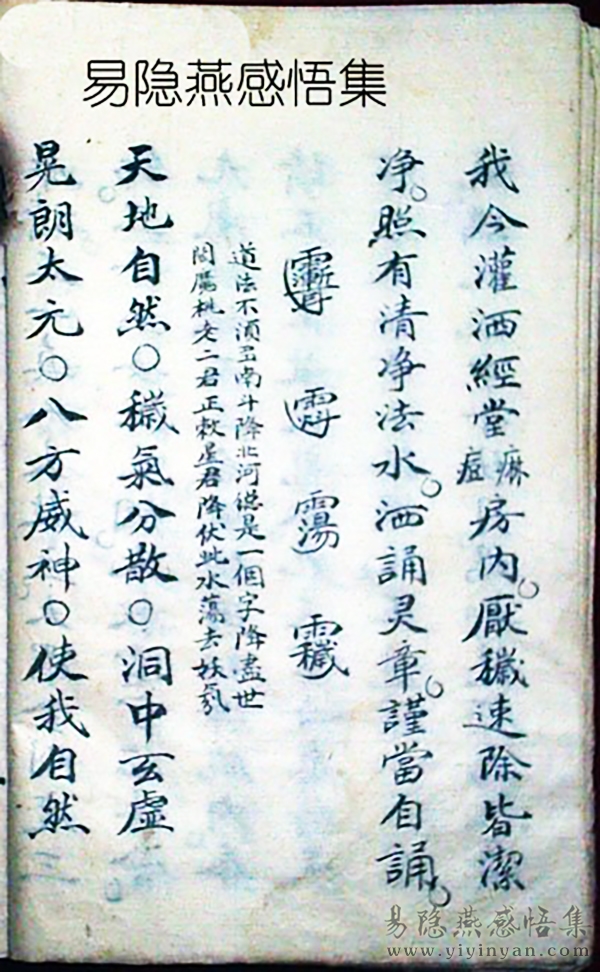 易隐燕感悟集
我今灌洒經堂痳痘房内。厭穢速除皆潔
净。照有清净法水。洒誦灵章。謹當自誦。
道法不須正南斗降北河總是一個字降盡世
間厲桃老二君正敕星君降伏此水蕩去妖氛
天地自然〇穢氣分散〇洞中玄虛
晃朗太元〇八方威神〇使我自然
易隐燕感悟集
www.yiyinyan.com